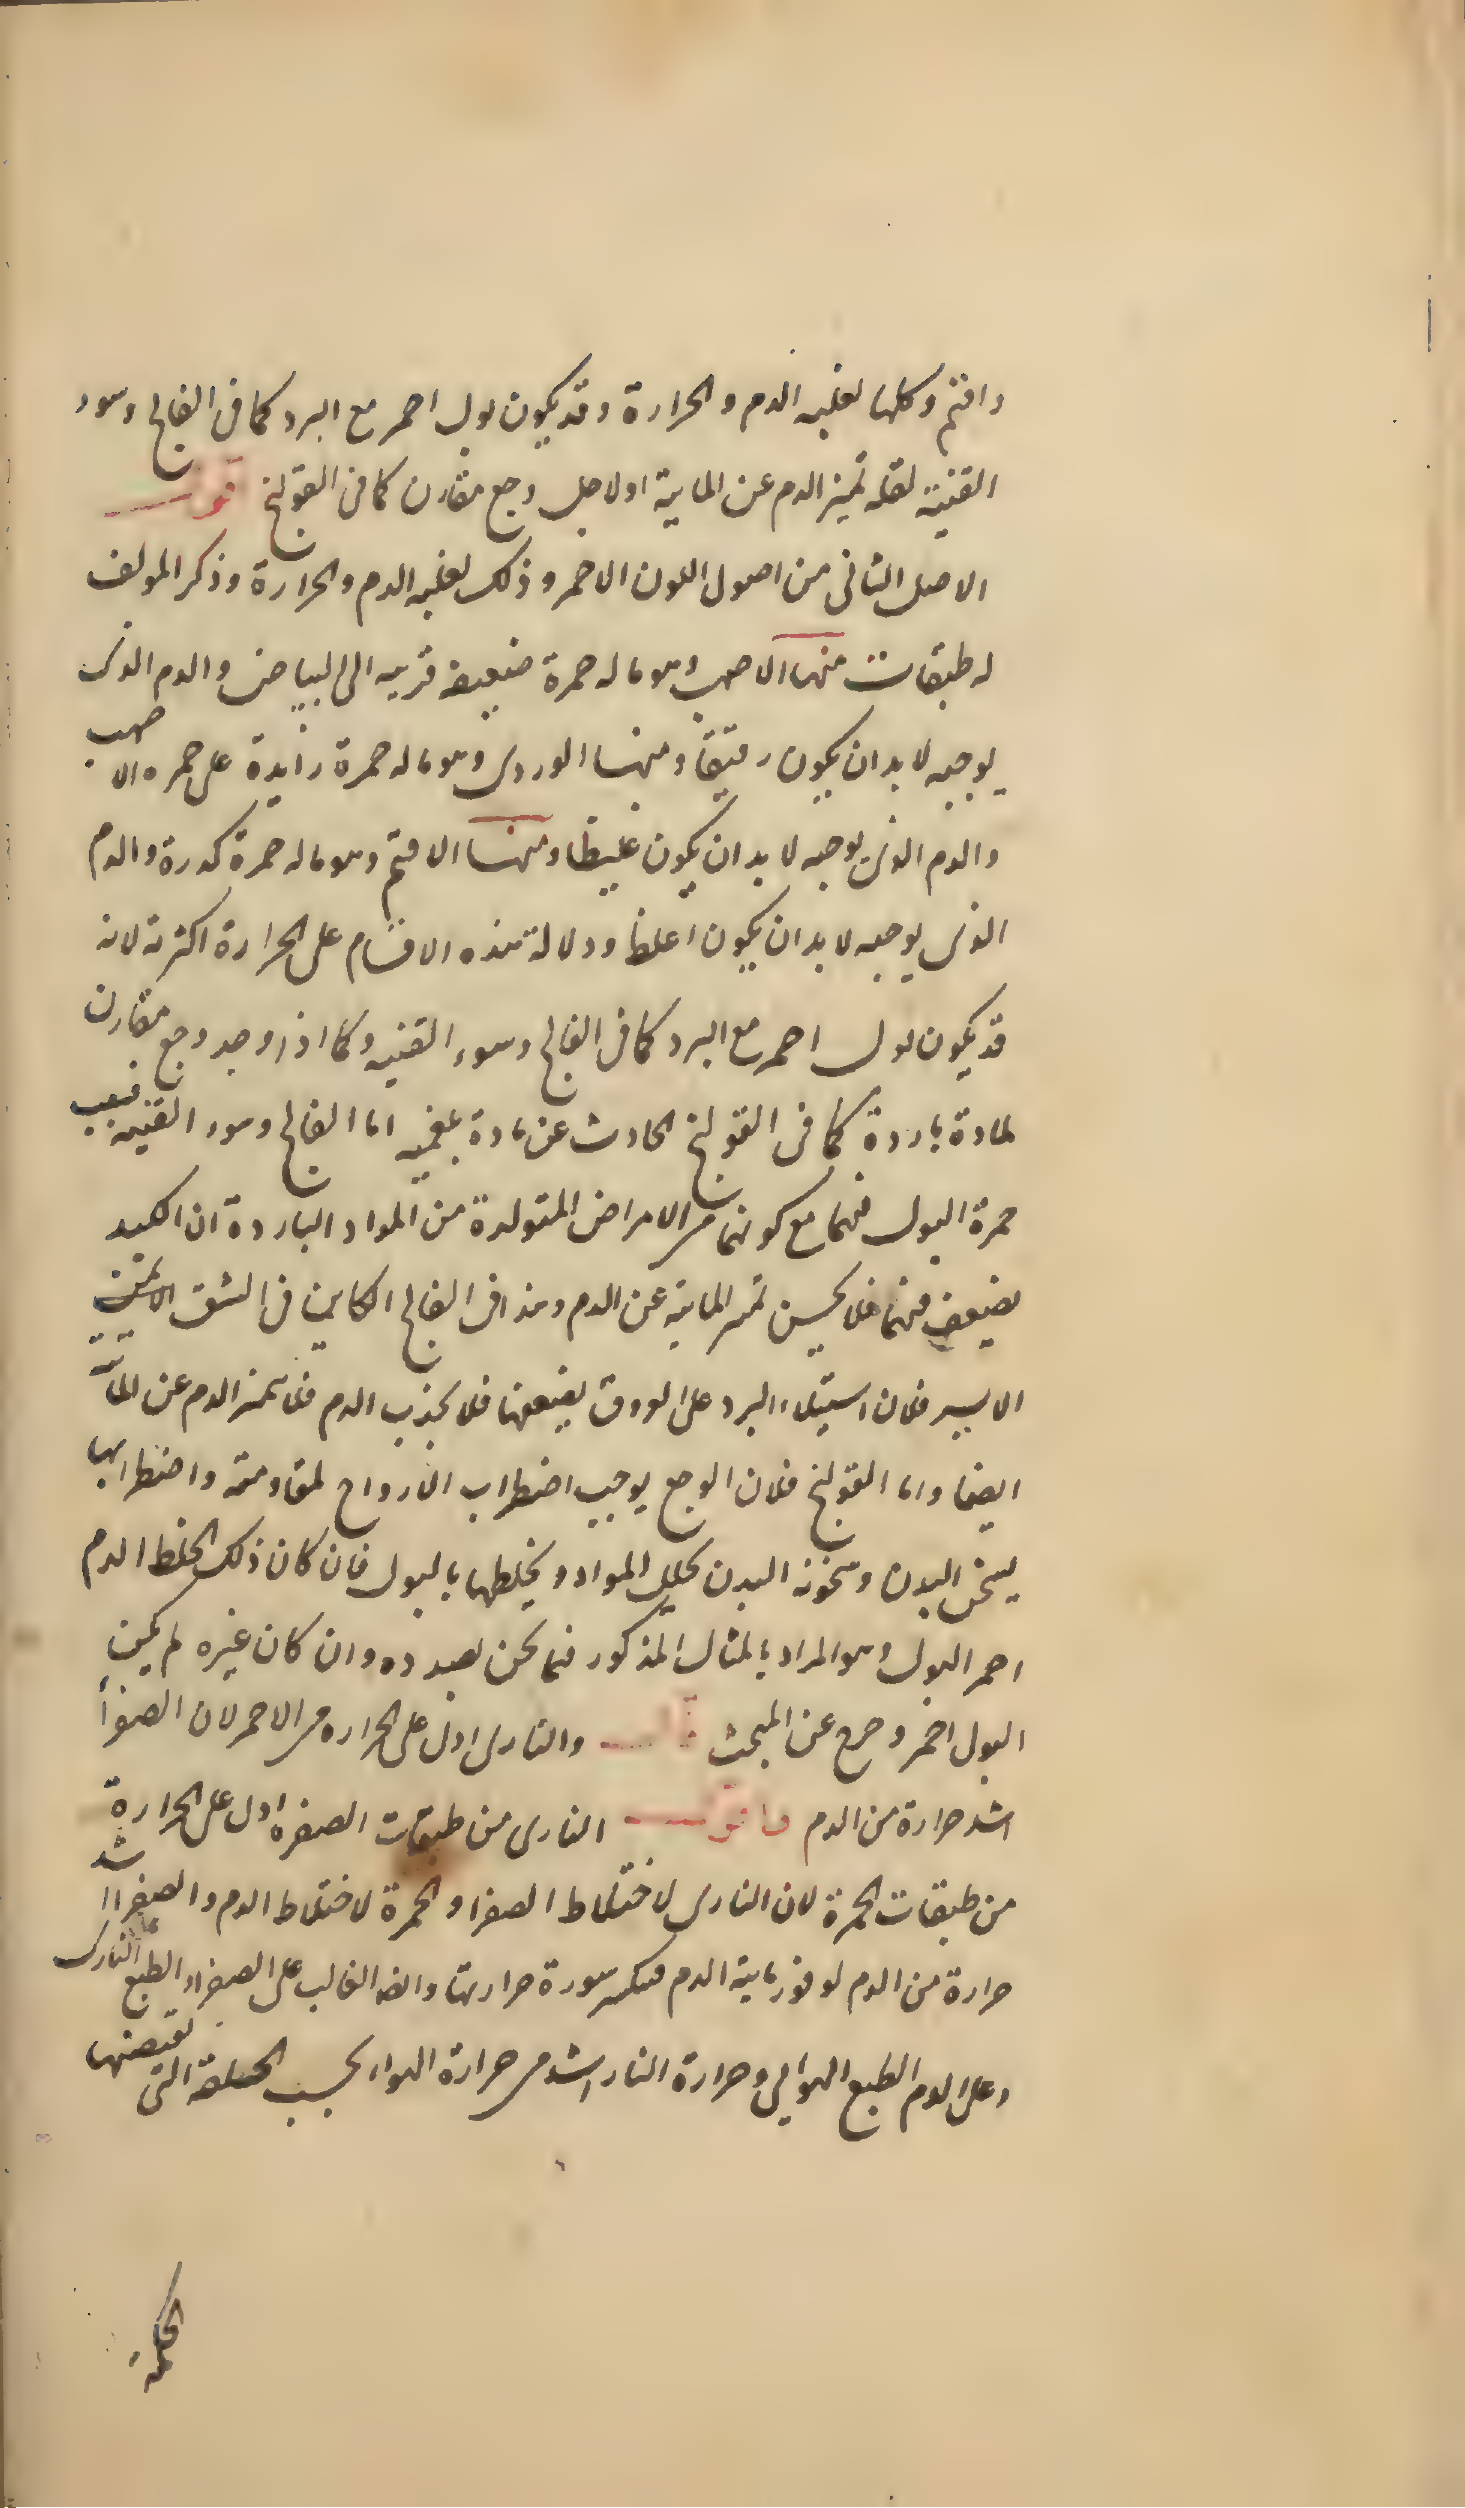 واقتم وكلها لغلبه الدم والحرارة وقد يكون بول احمر مع البرد كما فى الفالج وسوء
القنية لقلة تميز الدم عن المايية او لاجل وجع مقارن كما فى القولنج اقول
الاصل الثانى من اصول اللون الاحمر وذلك لغلبه الدم والحرارة وذكر المولف
له طبقات منها الاصهب وهو ما له حمرة ضعيفه قريبه الى البياض والدم الذى
يوجبه لا بد ان يكون رقيقا ومنها الوردى وهو ما له حمرة زايدة على حمره الاصهب
والدم الذى يوجبه لا بد ان يكون غليظا ومنها الاقتم وهو ما له حمرة كدرة والدم
الذى يوجبه لا بد ان يكون اغلظ ودلالة هذه الاقسام على الحرارة اكثرية لانه
قد يكون بول احمر مع البرد كما فى الفالج وسوء القنيه وكما اذا وجد وجع مقارن
لمادة باردة كما فى القولنج الحادث عن مادة بلغميه اما الفالج وسوء القنيه فسبب
حمرة البول فيهما مع كونهما من الامراض المتولدة من المواد الباردة ان الكبد
يضعف فيهما فلا يحسن تميز المايية عن الدم وهذا فى الفالج الكاين فى الشق الايمن
الايسر فلان استيلاء البرد على العروق يضعفها فلا يجذب الدم فلا يتميز الدم عن المايية
ايضا واما القولنج فلان الوجع يوجب اضطراب الارواح لمقاومته واضطرابها
يسخن البدن وسخونة البدن تحلل المواد ويخلطها بالبول فان كان ذلك الخلط الدم
احمر البول وهو المراد بالمثال المذكور فيما نحن بصدده وان كان غيره لم يكن
البول احمر وخرج عن المبحث قال والنارى ادل على الحراره من الاحمر لان الصفرا
اشد حرارة من الدم اقول النارى من طبقات الصفرة ادل على الحرارة
من طبقات الحمرة لان النارى لاختلاط الصفرا والحمرة لاختلاط الدم والصفرا اشد
حرارة من الدم لوفور مايية الدم فيكسر سورة حرارتها وايضا الغالب على الصفراء الطبع النارى
وعلى الدم الطبع الهوايى وحرارة النار اشد من حرارة الهواء بحسب الحكمة التى يقتضيها
الحكمة